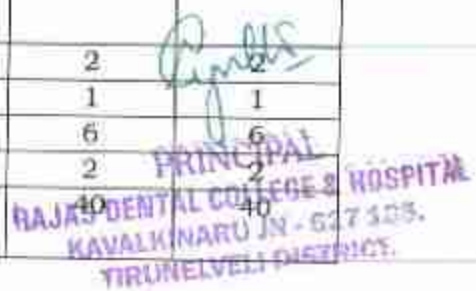 2 2
1 1
6 6
2 2
40 40
PRINCIPAL
RAJAS DENTAL COLLEGE & HOSPITAL
KAVALKINARU JN - 627 105.
TIRUNELVELI DISTRICT.